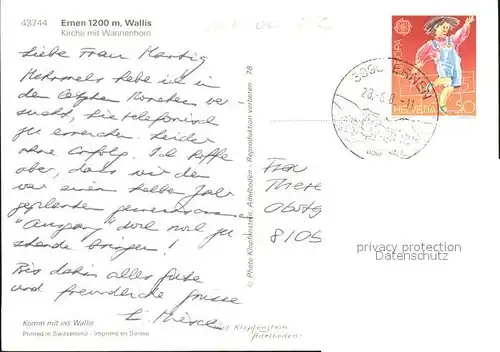 43744 Ernen 1200 m, Wallis
Kirche mit Wannenhorn
Liebe Frau Hartig
Mehrmals habe ich in
den letzten Monaten ver-
sucht, Sie telefonisch
zu erreichen. Leider
ohne Erfolg. Ich hoffe
aber, dass wir den
vor einem halben Jahr
geplanten gemeinsamen
"Ausgang" doch noch zu-
stande bringen!
Bis dahin alles Gute
und freundliche Grüsse
Kommt mit ins Wallis
Printed in Switzerland - Imprimé en Suisse
© Photo Klopfenstein, Adelboden - Reproduktion verboten 78
EUROPA
HELVETIA 50
ERNEN
Frau
There
Obstg
8105
privacy protection
Datenschutz
Klopfenstein
Adelboden